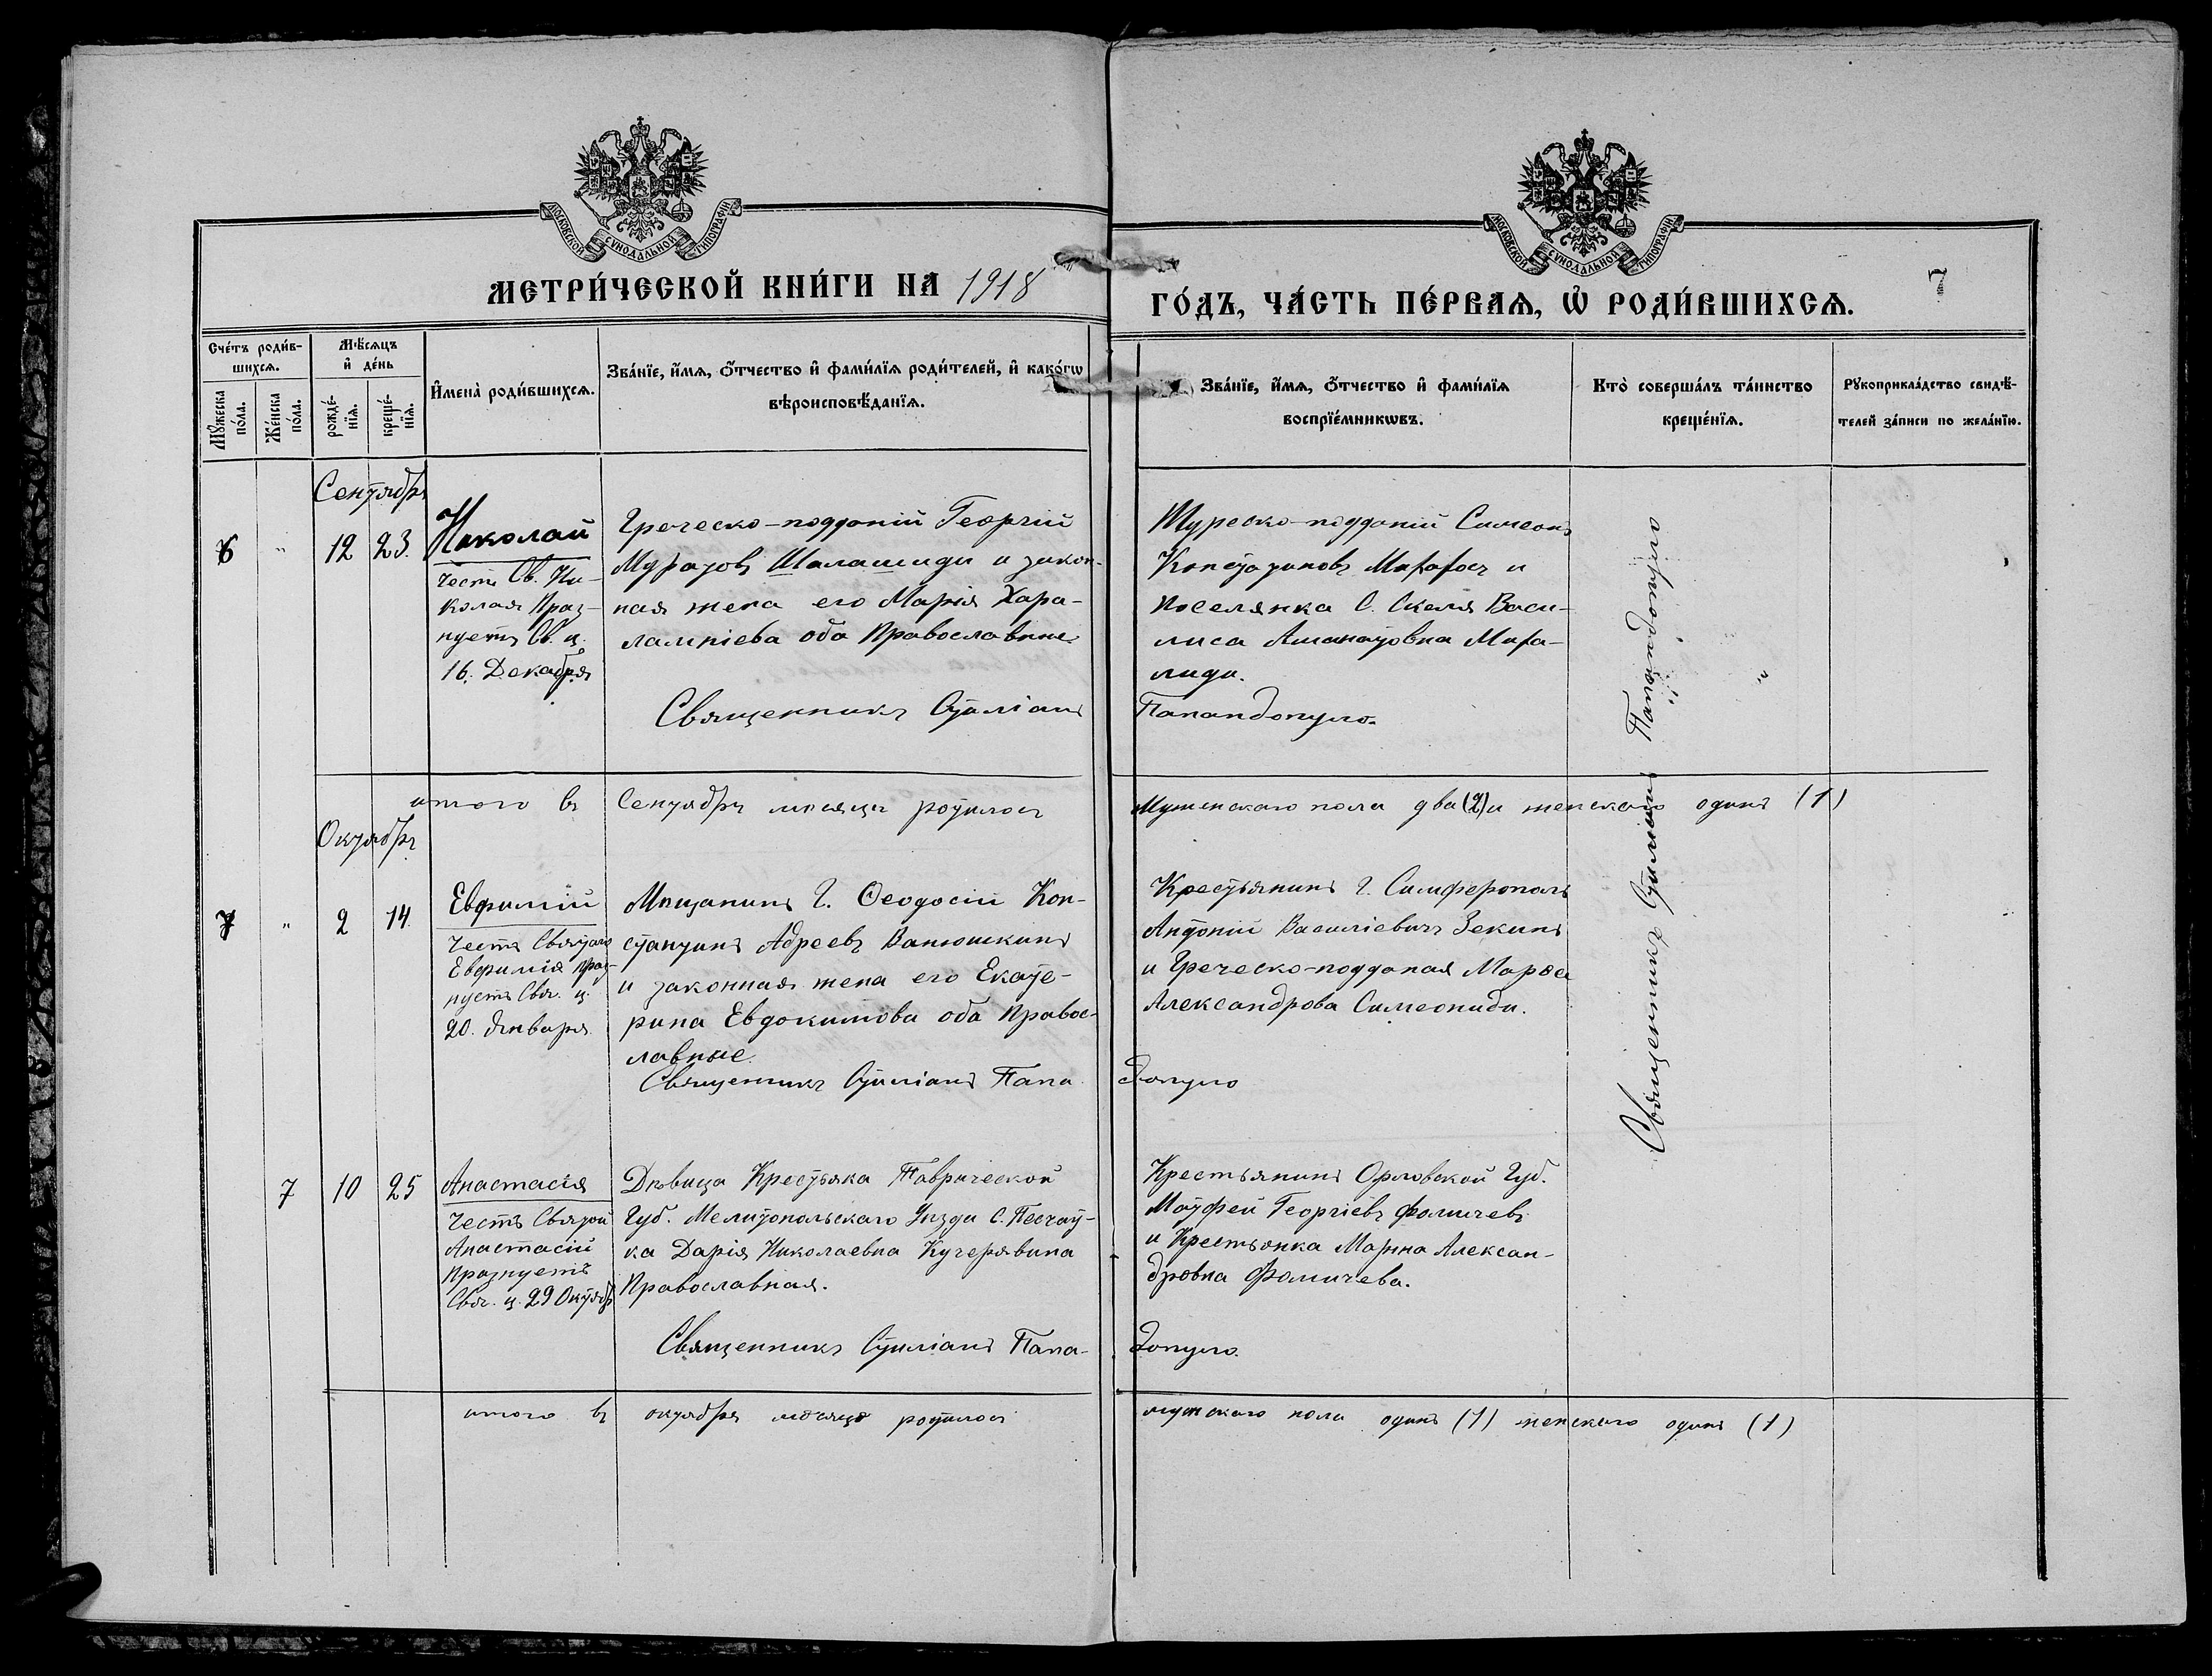 МОСКОВСКОЙ СѴНОДАЛЬНОЙ ТИПОГРАФІИ
МОСКОВСКОЙ СѴНОДАЛЬНОЙ ТИПОГРАФІИ
МЕТРИ́ЧЕСКОЙ КНИ́ГИ НА 1918
ГО́ДЪ, ЧА́СТЬ ПЕ́РВАѦ, Ѽ РОДИ́ВШИХСѦ.
7
Сче́тъ роди́в-
шихсѧ.
Мꙋ́жеска
по́ла.
Же́нска
по́ла.
Мѣ́сѧцъ
и҆ де́нь
рожде́-
нїѧ.
креще́-
нїѧ.
И҆мена̀ роди́вшихсѧ.
Зва́нїе, и҆́мѧ, ѻ҆́тчество и҆ фами́лїѧ роди́телей, и҆ како́гѡ
вѣроисповѣ́данїѧ.
Зва́нїе, и҆́мѧ, ѻ҆́тчество и҆ фами́лїѧ
воспрїе́мникѡвъ.
Кто̀ соверша́лъ та́инство
креще́нїѧ.
Рꙋкоприкла́дство свидѣ́-
телей за́писи по жела́нїю.
Сентябрь
6 " 12 23.
Николай
честь Св. Ни-
колая Праз-
нуетъ Св. ц.
16. Декабря
Греческо-подданій Георгій
Муратовъ Шалашиди и закон-
ная жена его Марія Хара-
лампіева оба Православные
Священникъ Стиліанъ Папандопуло.
Турецко-подданій Симеонъ
Константиновъ и
поселянка С. Скеля Васи-
лиса
лиди.
итого въ Сентябрь мѣсяцъ родилось Мужескаго пола два (2) и женскаго одинъ (1)
Октябрь
7 " 2 14.
Евфимій
честь Святаго
Евфимія Праз-
нуетъ Свя. ц.
20. Января
Мѣщанинъ Г. Ѳеодосіи Кон-
стантинъ Адреевъ Ванюшкинъ
и законная жена его Екате-
рина Евдокимова оба Правос-
лавные.
Священникъ Стиліанъ Папа допуло
Крестьянинъ Г. Симферополь
Антоній Василіевичъ Зекинъ
и Греческо-подданая Марѳа
Александрова Симеониди.
7 10 25
Анастасія
честь Святой
Анастасіи
Празнуетъ
Свя. ц. 29 Октябр
Дѣвица Крестьяка Таврической
Губ. Мелитопольскаго Уѣзда С. Песчат-
ка Дарія Николаевна Кучерявина
Православная.
Священникъ Стиліанъ Папа- допуло.
Крестьянинъ Орловской Губ.
Матфей Георгіевъ Фомичевъ
и Крестьянка Марина Алексан-
дровна Фомичева.
итого въ октябрѣ мѣсяцѣ родилось мужескаго пола одинъ (1) женскаго одинъ (1)
Священникъ Стиліанъ Папандопуло
"